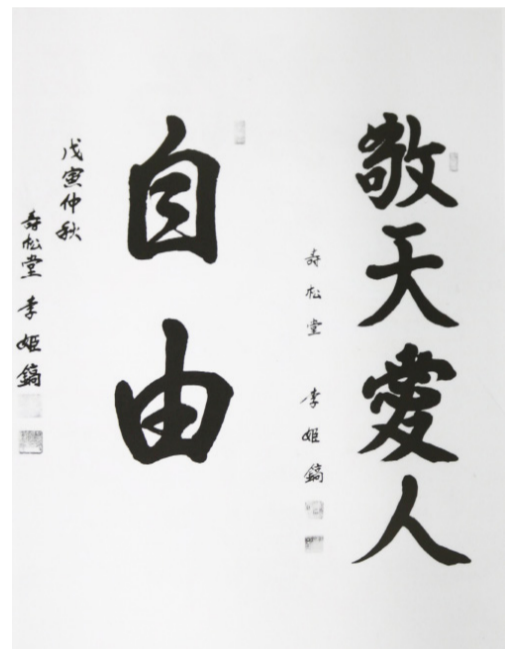 敬天愛人
壽松堂 李姬鎬
自由
戊寅仲秋
壽松堂 李姬鎬